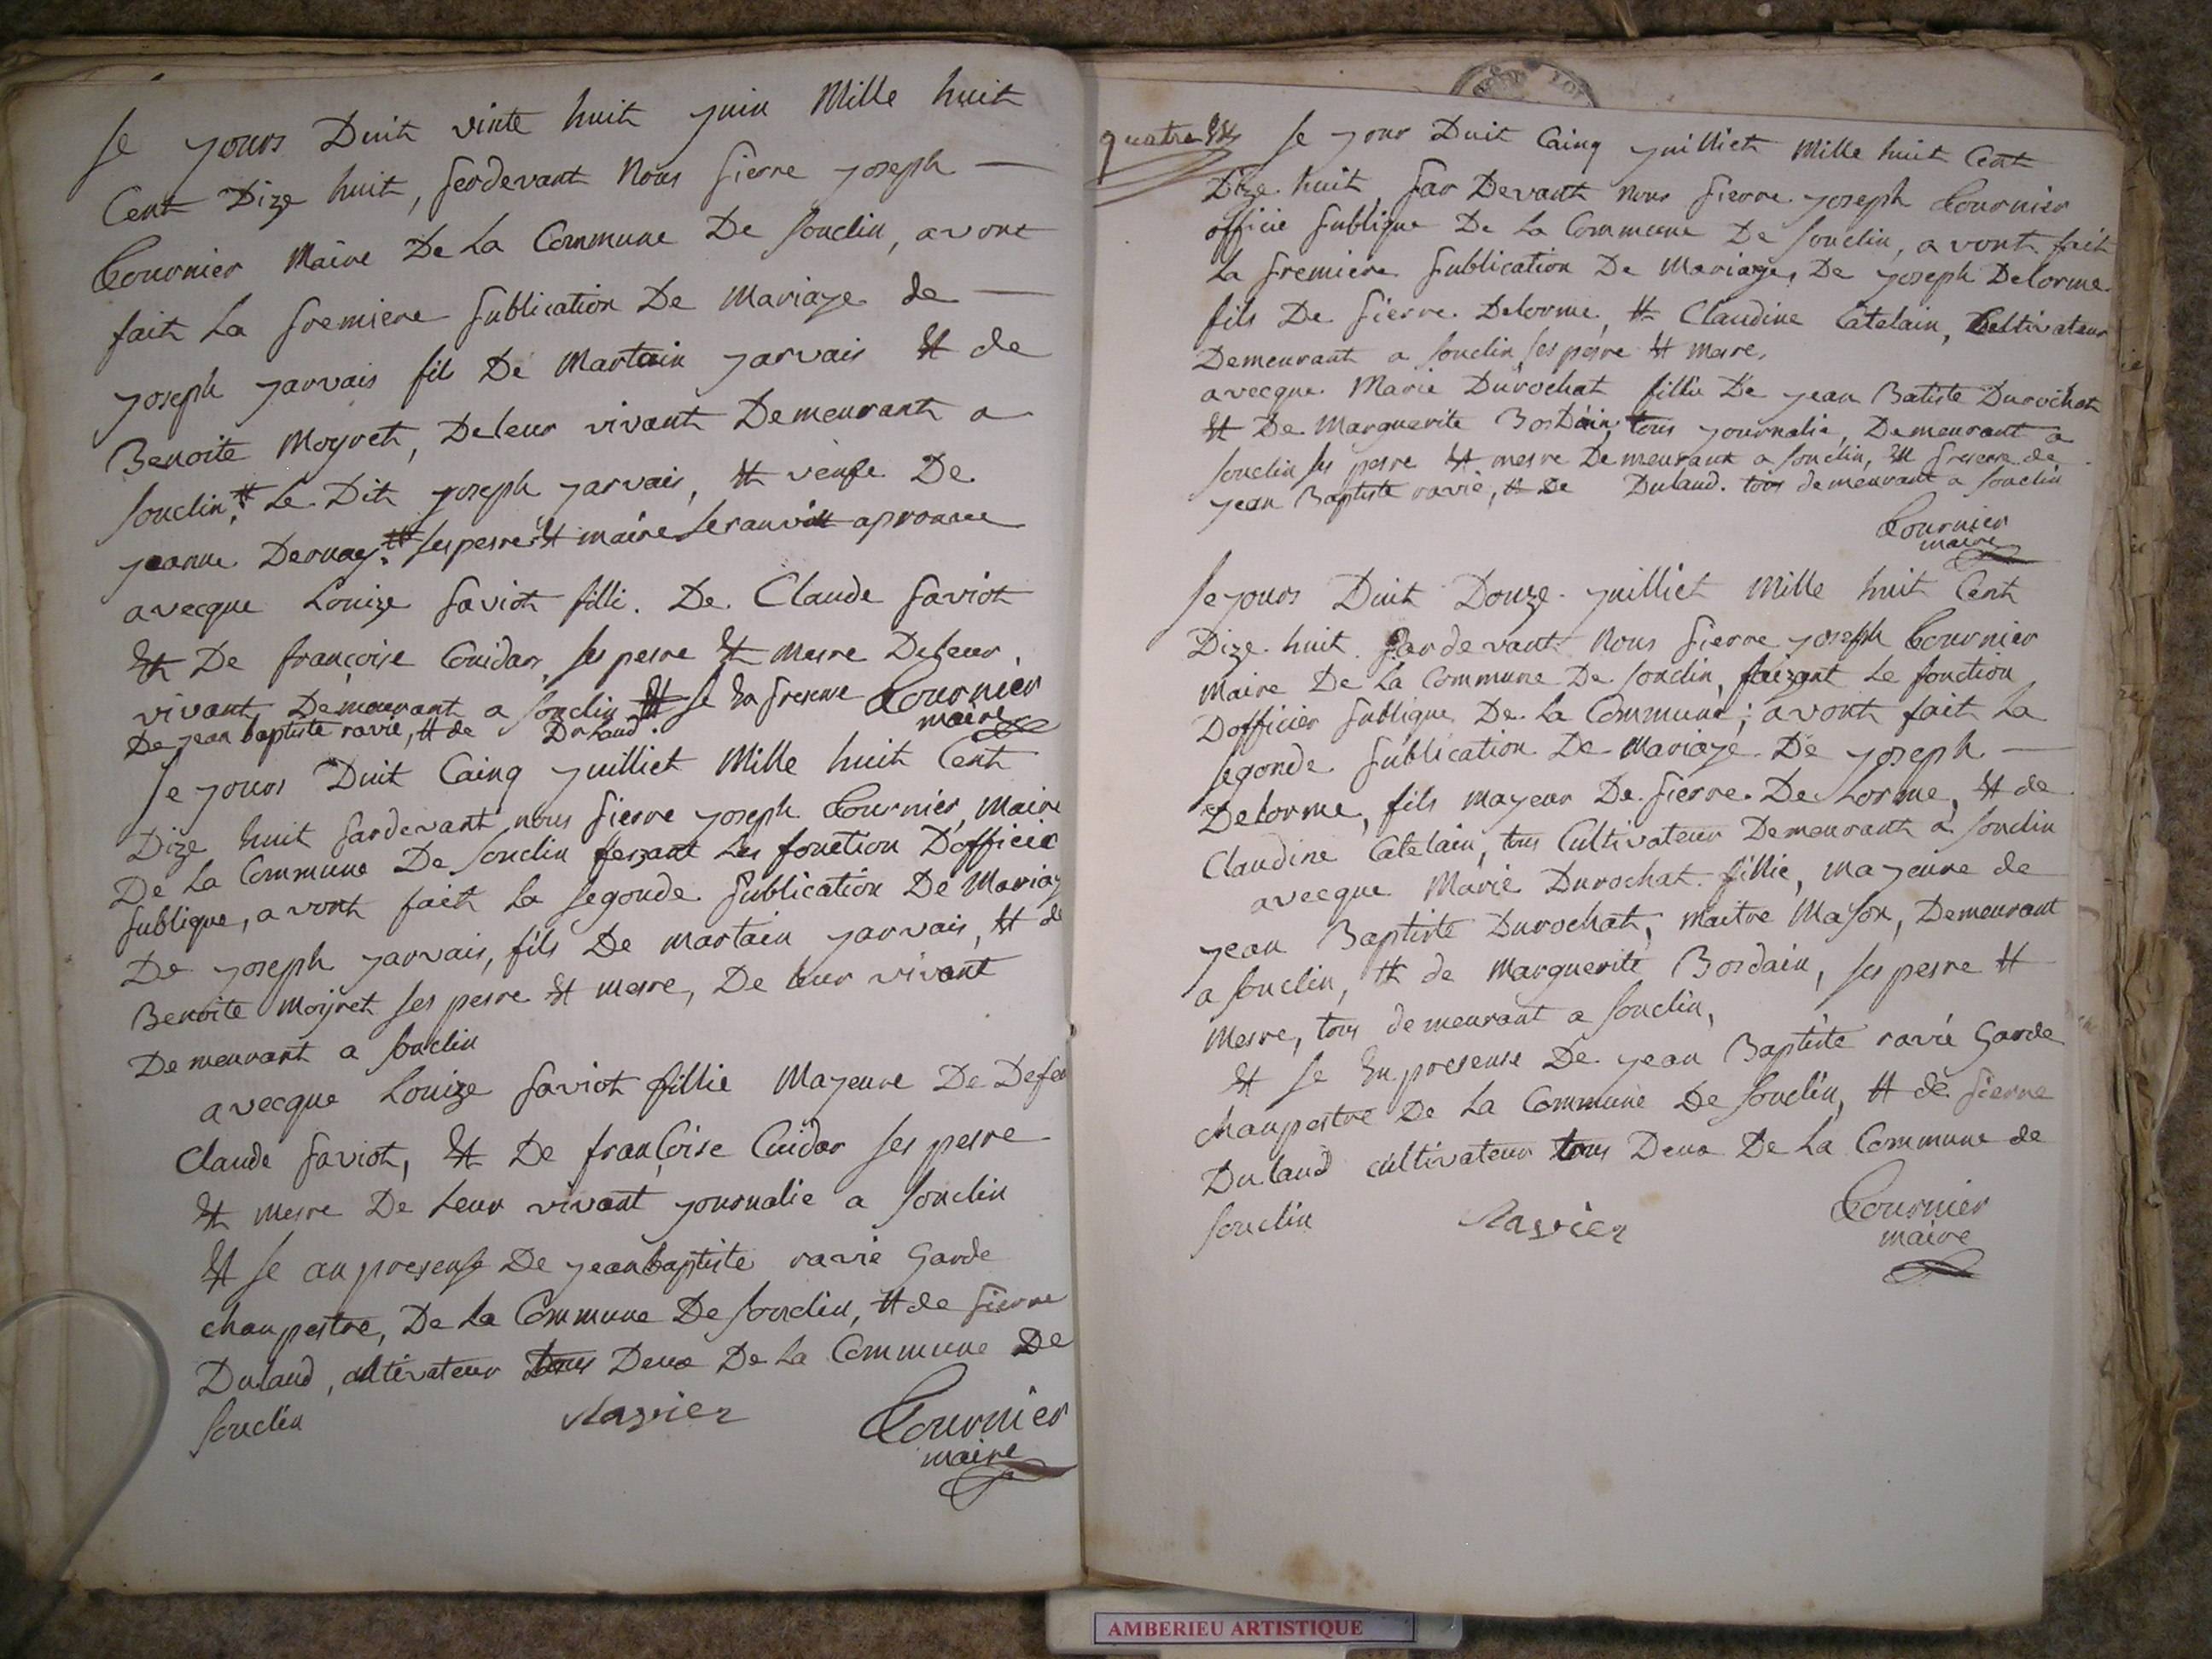 Se yours Duit vinte huit juin Mille huit
Cent Dize huit, perdevant Nous pierre joseph
Cournier Maire De La Commune De Souclin, avont
fait La premiere publication De Mariage de
joseph jarvais fils De Martain jarvais Et de
Benoite Moyret, Deleur vivant Demeurant a
Souclin, Et Le Dit joseph jarvais, Et veufe De
jeanne ses pesre Et maire
avecque Louize Saviot filli. De. Claude Saviot
Et De françoise Cuidar, ses pesre Et Mesre Deleur
vivant Demeurant a Souclin Et Se En presene Cournier
maire
De jean baptiste ravié, Et de Duland.
Se yours Duit Cainq juilliet Mille huit Cent
Dize huit pardevant nous pierre joseph Cournier, Maire
De La Commune De Souclin fesant Les fonction D'officié
publique, avont fait La segonde publication De Mariag
De joseph jarvais, fils De martain jarvais, Et de
Benoite Moyret ses pesre Et mesre, De leur vivant
Demeurant a Souclin
avecque Louize Saviot fillie Mayeure De Defeu
Claude Saviot, Et De françoise Cuidar ses pesre
Et mesre De Leur vivant journalie a Souclin
Et Se an presense De jeanbaptiste ravié Garde
chanpestre, De La Commune De Souclin, Et de pierre
Duland, cultivateur tous Deux De La Commune De
Souclin Ravier Cournier
maire
quatre Se jour Duit Cainq juilliet Mille huit Cent
Dize huit, par Devant Nous pierre joseph Cournier
officié publique De La Commune De Souclin, avont fait
La premiere publication De Mariage, De joseph Delorme
fils De pierre Delorme, Et Claudine Catelain, Cultivateur
Demeurant a Souclin ses pesre Et mesre,
avecque Marie Durochat fillie De jean Batiste Durochat
Et De Marguerite Bordain, tous journalie, Demeurant a
Souclin ses pesre Et mesre Demeurant a Souclin, Et presene de
jean Baptiste ravié, Et De Duland. tous demeurant a Souclin
Cournier
maire
Se yours Duit Douze juilliet Mille huit Cent
Dize huit Pardevant Nous pierre joseph Cournier
Maire De La Commune De Souclin, faizant Le fonction
Dofficier publique De La Commune; avont fait La
segonde publication De Mariage De joseph
Delorme, fils mayeur De pierre De Lorme, Et de
Claudine Catelain, tous Cultivateur Demeurant a Souclin
avecque Marie Durochat fillie, mayeure de
jean Baptiste Durochat, maitre Mason, Demeurant
a Souclin, Et de Marguerite Bordain, ses pesre Et
Mesre, tous demeurant a Souclin,
Et Se En presense De jean Baptiste ravié Garde
chanpestre De La Commune De Souclin, Et de pierre
Duland cultivateur tous Deux De La Commune de
Souclin Ravier Cournier
maire
AMBERIEU ARTISTIQUE